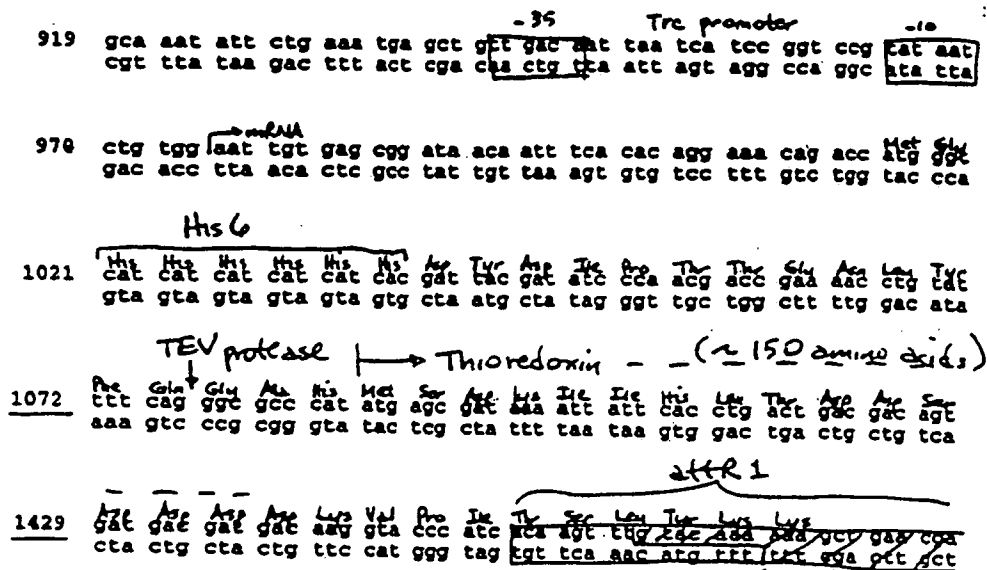 -35 Trc promoter -10
919 gca aat att ctg aaa tga gct gtt gac aat taa tca tcc ggt ccg tat aat
cgt tta taa gac ttt act cga caa ctg tta att agt agg cca ggc ata tta
mRNA
Met Gly
970 ctg tgg aat tgt gag cgg ata aca att tca cac agg aaa cag acc atg ggt
gac acc tta aca ctc gcc tat tgt taa agt gtg tcc ttt gtc tgg tac cca
His 6
His His His His His His Asp Tyr Asp Ile Pro Thr Thr Gly Asn Leu Tyr
1021 cat cat cat cat cat cac gat tac gat atc cca acg acc gaa aac ctg tat
gta gta gta gta gta gtg cta atg cta tag ggt tgc tgg ctt ttg gac ata
TEV protease Thioredoxin - - (~ 150 amino acids)
Phe Gln Gly Ala His Met Ser Asp Lys Ile Ile His Leu Thr Asp Asp Ser
1072 ttt cag ggc gcc cat atg agc gat aaa att att cac ctg act gac gac agt
aaa gtc ccg cgg gta tac tcg cta ttt taa taa gtg gac tga ctg ctg tca
attR1
Asp Asp Asp Asp Lys Val Pro Ile Thr Ser Leu Tyr Lys Lys
1429 gat gat gat gac aag gta ccc atc aca agt ttg tac aaa aaa gct gaa cga
cta cta cta ctg ttc cat ggg tag tgt tca aac atg ttt ttt cga ctt gct